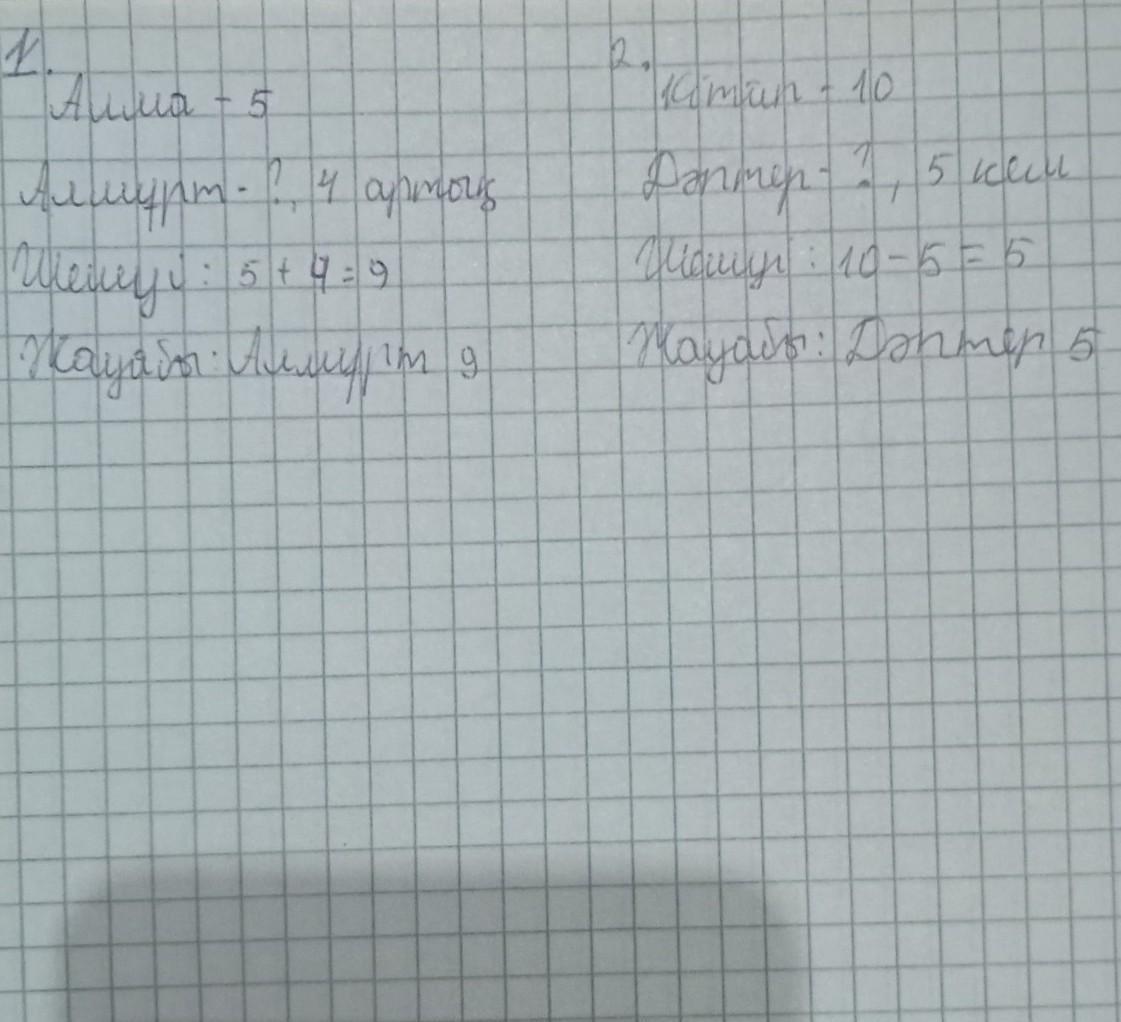 1.
Алма - 5
Алмұрт - ?, 4 артық
Шешуі: 5 + 4 = 9
Жауабы: Алмұрт 9
2.
Кітап - 10
Дәптер - ?, 5 кем
Шешуі: 10 - 5 = 5
Жауабы: Дәптер 5